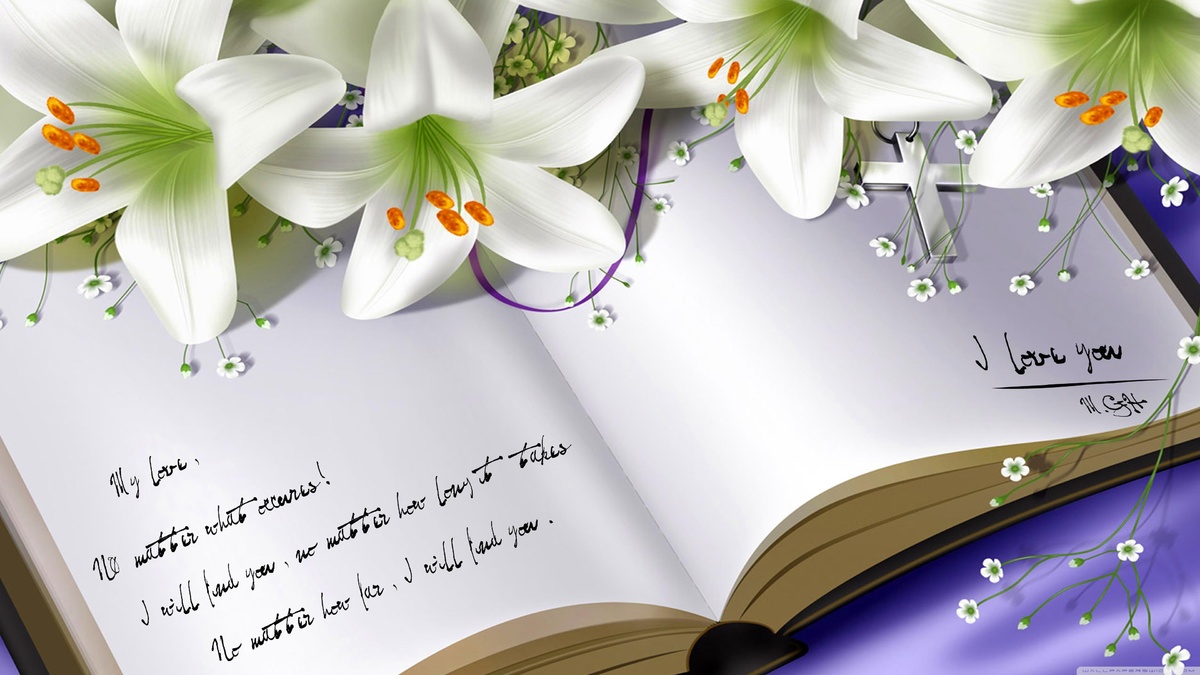 My love,
No matter what occures!
I will find you, no matter how long it takes
No matter how far, I will find you.
I love you